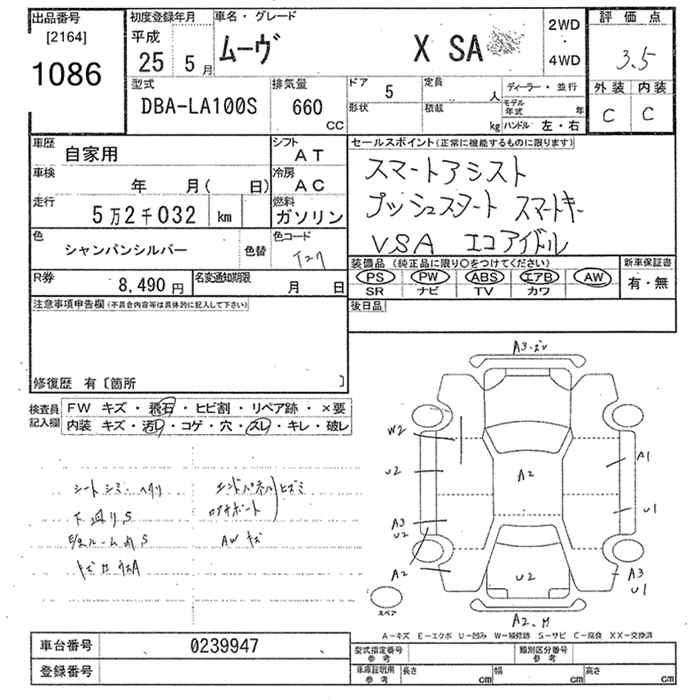 出品番号
[2164]
1086
初度登録年月
平成
25 5月
車名・グレード
ムーヴ X SA
2WD
・
4WD
評価点
3.5
外装 内装
C C
型式
DBA-LA100S
排気量
660
CC
ドア 5
形状
定員 人
積載 kg
ディーラー・並行
モデル年式 年
ハンドル 左・右
車歴 自家用
シフト AT
車検 年 月( 日)
冷房 AC
走行 5万2千032 km
燃料 ガソリン
色 シャンパンシルバー 色替
色コード T27
R券 8,490円
名変通知期限 月 日
セールスポイント(正常に機能するものに限ります)
スマートアシスト
プッシュスタート スマートキー
VSA エコアイドル
装備品 (純正品に限り〇をつけてください)
PS PW ABS エアB AW
SR ナビ TV カワ
新車保証書
有・無
後日品
注意事項申告欄(不具合内容等は具体的に記入して下さい)
修復歴 有〔箇所 〕
検査員記入欄
FW キズ・飛石・ヒビ割・リペア跡・×要
内装 キズ・汚レ・コゲ・穴・スレ・キレ・破レ
シートシミ・ヘタリ
下廻りS
AWキズ
エンドパネル ヒズミ
A3
W2
U2
A3
U2
A2
A2
A1
U1
A3
U1
U2
A2
スペア
A-キズ E-エクボ U-凹み W-補修跡 S-サビ C-腐食 XX-交換済
車台番号 0239947
登録番号
型式指定番号 参考
類別区分番号 参考
車庫証明用 参考
長さ cm 幅 cm 高さ cm